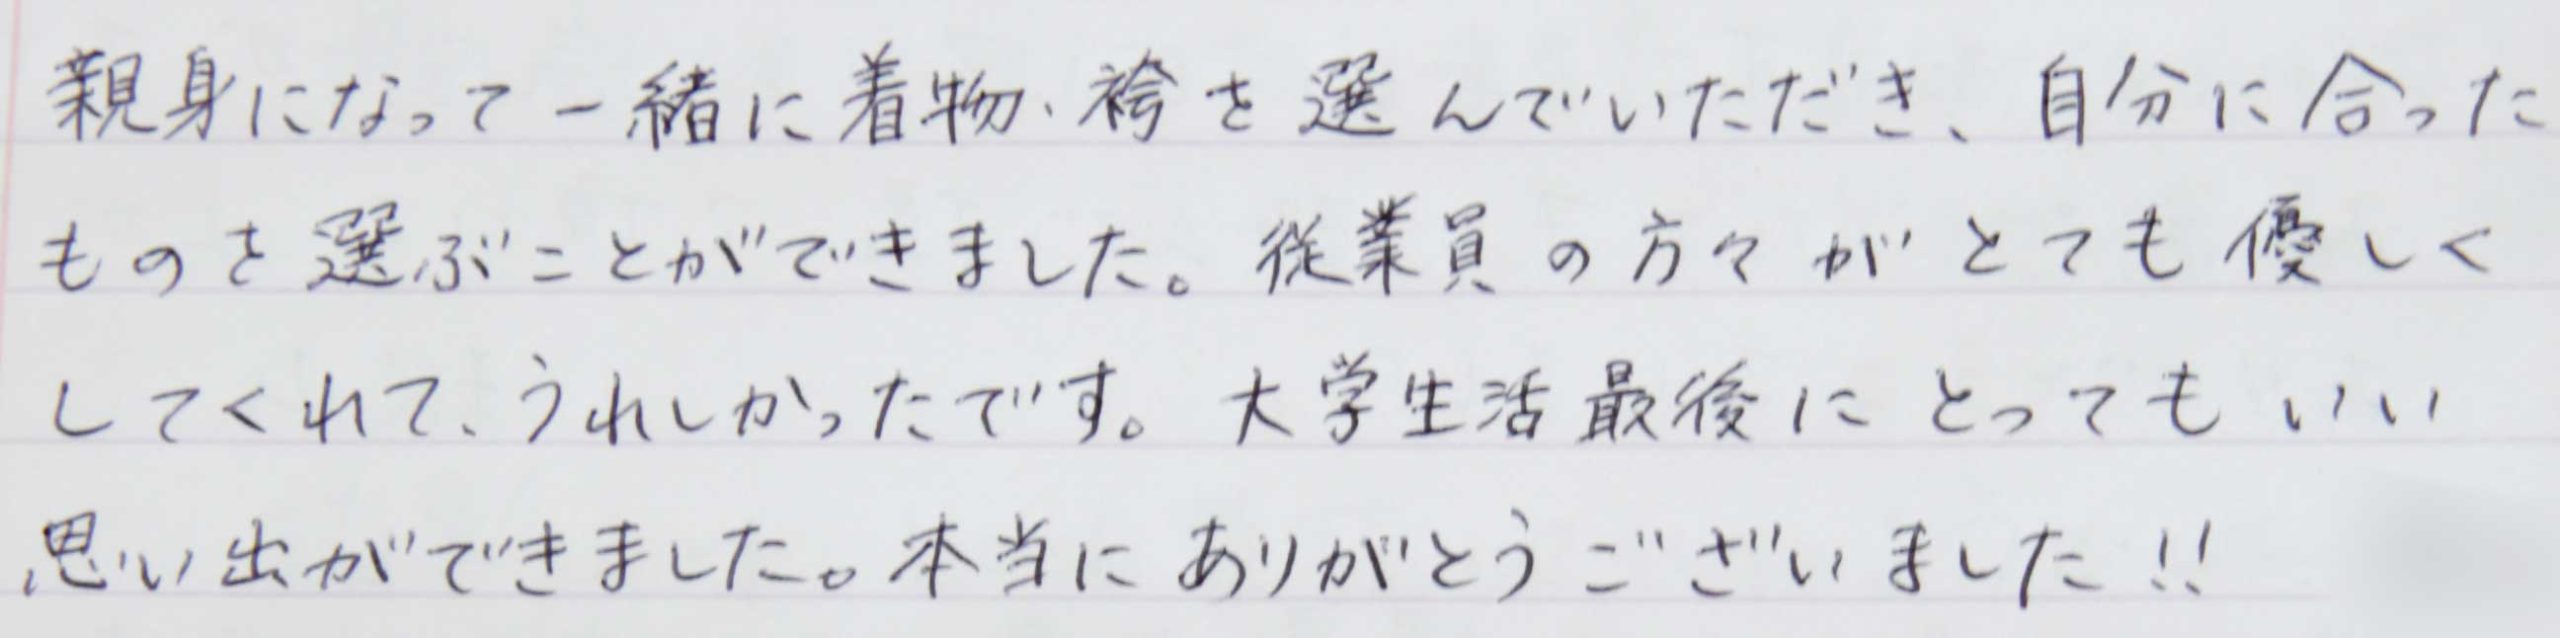 親身になって一緒に着物・袴を選んでいただき、自分に合った
ものを選ぶことができました。従業員の方々がとても優しく
してくれて、うれしかったです。大学生活最後にとってもいい
思い出ができました。本当にありがとうございました!!